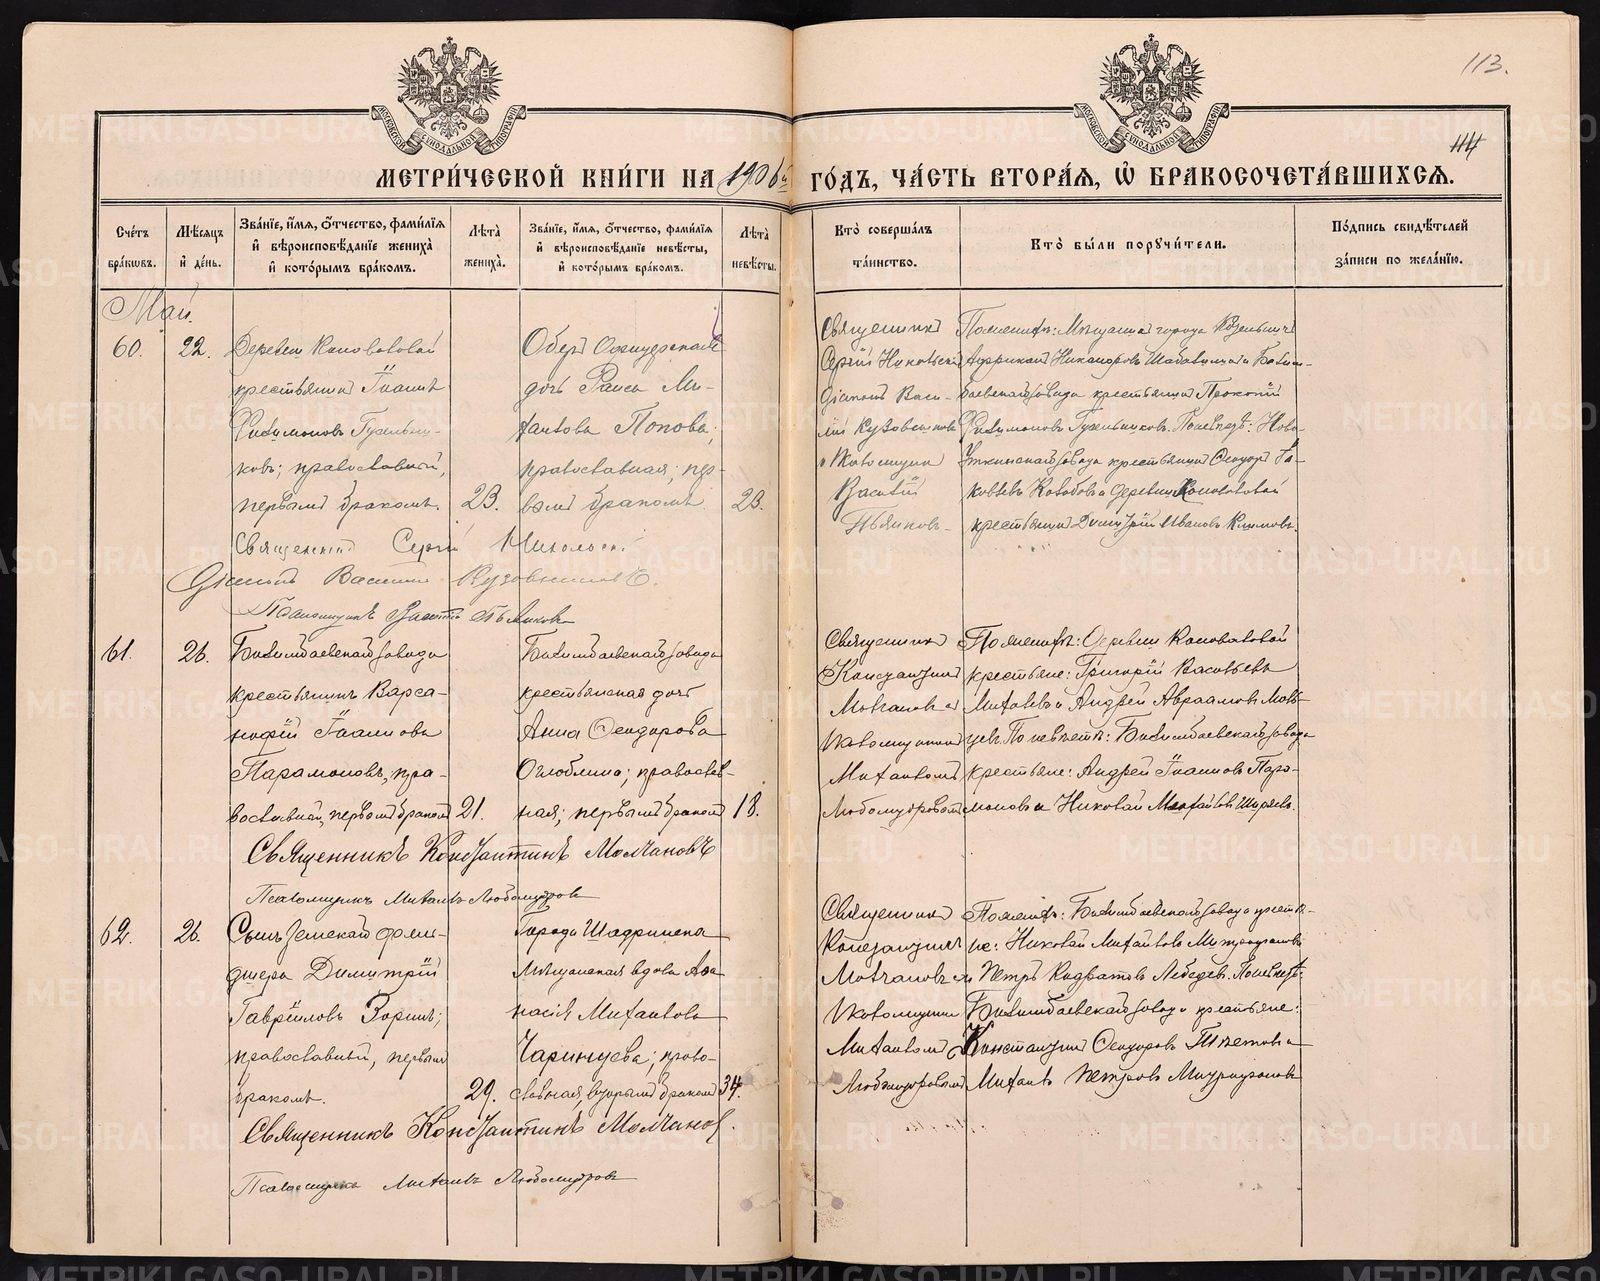 113.
114
МЕТРИ́ЧЕСКОЙ КНИ́ГИ НА 1906й ГО́ДЪ, ЧА́СТЬ ВТОРА́Я, Ѡ҆ БРАКОСОЧЕТА́ВШИХСЯ.
Сче́тъ бра́кѡвъ.
Мѣ́сяцъ и҆ де́нь.
Зва́нїе, и҆́мя, ѻ҆́тчество, фами́лїя и҆ вѣроисповѣ́данїе жениха̀ и҆ кото́рымъ бра́комъ.
Лѣ́та жениха̀.
Зва́нїе, и҆́мя, ѻ҆́тчество, фами́лїя и҆ вѣроисповѣ́данїе невѣ́сты, и҆ кото́рымъ бра́комъ.
Лѣ́та невѣ́сты.
Кто̀ соверша́лъ та́инство.
Кто̀ бы́ли порꙋчи́тели.
По́дпись свидѣ́телей за́писи по жела́нїю.
Май.
60.
22.
Деревни Коноваловой
крестьянинъ Іоаннъ
Филимоновъ Гузельни-
ковъ; православный,
первымъ бракомъ.
23.
Оберъ Офицерская
дочь Раиса Ми-
хаилова Попова;
православная; пер-
вымъ бракомъ.
23.
Священникъ
Сергій Никольскій
Діаконъ Васи-
лій Кузовниковъ
и Псаломщикъ
Василій
Пьянковъ
По женихѣ: Мѣщанинъ города
Африканъ Никаноровъ и Билим-
баевскаго завода крестьянинъ Прокопій
Филимоновъ Гузельниковъ. По невѣстѣ: Ново-
Уткинскаго завода крестьянинъ Ѳеодоръ Іа-
ковлевъ и деревни Коноваловой
крестьянинъ Димитрій Ивановъ Климовъ.
Священникъ Сергій Никольскій
Діаконъ Василій Кузовниковъ.
Псаломщикъ Василій Пьянковъ
61.
26.
Билимбаевскаго завода
крестьянинъ Варса-
нофій Іоанновъ
Парамоновъ, пра-
вославный, первымъ бракомъ
21.
Билимбаевскаго завода
крестьянская дочь
Анна Ѳеодорова
Оглоблина; православ-
ная; первымъ бракомъ
18.
Священникъ
Константинъ
Молчановъ съ
Псаломщикомъ
Михаиломъ
Любомудровымъ
По женихѣ: Деревни Коноваловой
крестьяне: Григорій Васильевъ
Михалевъ и Андрей Авраамовъ
По невѣстѣ: Билимбаевскаго завода
крестьяне: Андрей Іоанновъ Пара-
моновъ и Николай Михайловъ Ширяевъ.
Священникъ Константинъ Молчановъ
Псаломщикъ Михаилъ Любомудровъ
62.
26.
Сынъ Земскаго фельд-
шера Димитрій
Гавріиловъ Зоринъ;
православный, первымъ
бракомъ.
29.
Города Шадринска
мѣщанская вдова Ана-
насія Михаилова
Чаринцева; право-
славная, вторымъ бракомъ
34.
Священникъ
Константинъ
Молчановъ съ
Псаломщикомъ
Михаиломъ
Любомудровымъ
По женихѣ: Билимбаевскаго завода крестья-
не: Николай Михайловъ Митрофановъ
и Петръ Кодратовъ Лебедевъ. По невѣстѣ:
Билимбаевскаго завода крестьяне:
Константинъ Ѳеодоровъ и
Михаилъ Петровъ Митрофановъ
Священникъ Константинъ Молчановъ.
Псаломщикъ Михаилъ Любомудровъ
METRIKI.GASO-URAL.RU